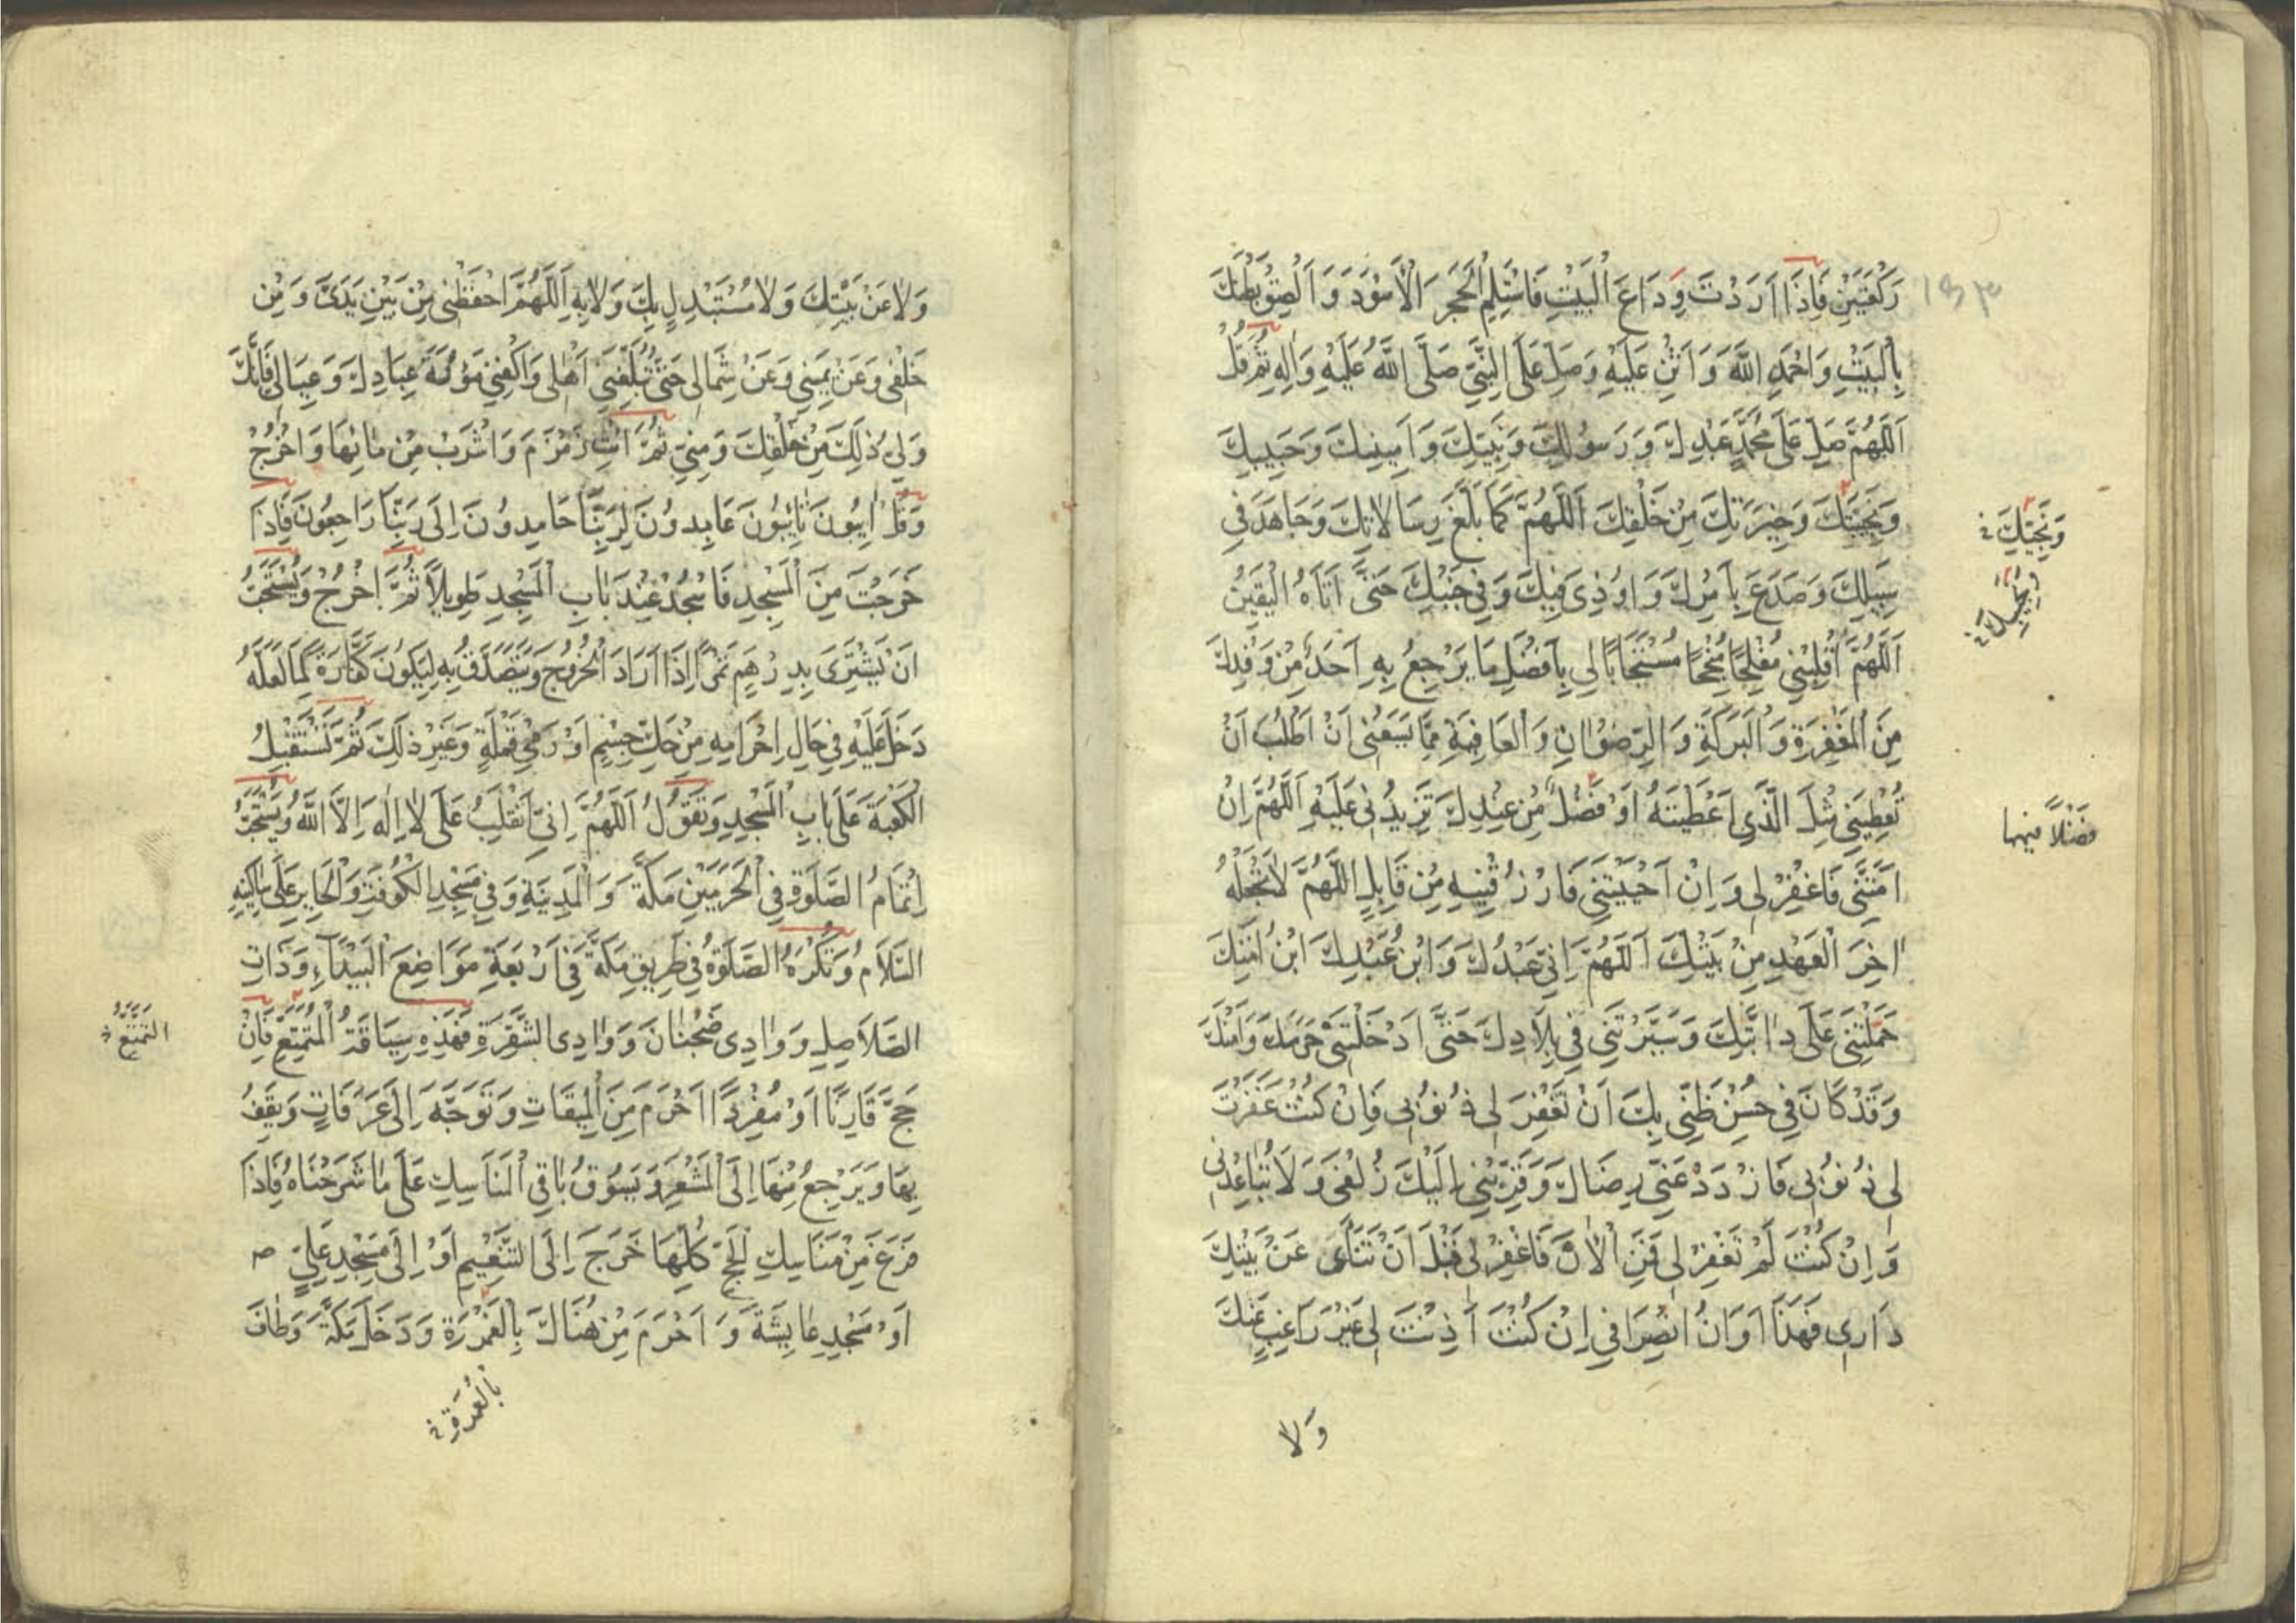 رَكْعَتَيْنِ فَاِذَا اَرَدْتَ وِدَاعَ الْبَيْتِ فَاسْتَلِمِ الْحَجَرَ الْاَسْوَدَ وَاَلْصِقْ بَطْنَكَ
۱۵۳
بِالْبَيْتِ وَاحْمَدِ اللّٰهَ وَاَثْنِ عَلَيْهِ وَصَلِّ عَلَى النَّبِيِّ صَلَّى اللّٰهُ عَلَيْهِ وَاٰلِهِ ثُمَّ قُلْ
اَللّٰهُمَّ صَلِّ عَلٰى مُحَمَّدٍ عَبْدِكَ وَرَسُولِكَ وَنَبِيِّكَ وَاَمِينِكَ وَحَبِيبِكَ
وَنَجِيبِكَ وَخِيَرَتِكَ مِنْ خَلْقِكَ اَللّٰهُمَّ كَمَا بَلَّغَ رِسَالَاتِكَ وَجَاهَدَ فِي
وَنَجِيِّكَ
سَبِيلِكَ وَصَدَعَ بِاَمْرِكَ وَاُوذِيَ فِيكَ وَفِي جَنْبِكَ حَتّٰى اَتَاهُ الْيَقِينُ
اَللّٰهُمَّ اَقْلِبْنِي مُفْلِحًا مُنْجِحًا مُسْتَجَابًا لِي بِاَفْضَلِ مَا يَرْجِعُ بِهِ اَحَدٌ مِنْ وَفْدِكَ
مِنَ الْمَغْفِرَةِ وَالْبَرَكَةِ وَالرِّضْوَانِ وَالْعَافِيَةِ مِمَّا يَسَعُنِي اَنْ اَطْلُبَ اَنْ
تُعْطِيَنِي مِثْلَ الَّذِي اَعْطَيْتَهُ اَوْ فَضْلً مِنْ عِنْدِكَ تَزِيدُنِي عَلَيْهِ اَللّٰهُمَّ اِنْ
فَضْلًا منها
اَمَتَّنِي فَاغْفِرْ لِي وَاِنْ اَحْيَيْتَنِي فَارْزُقْنِيهِ مِنْ قَابِلٍ اَللّٰهُمَّ لَا تَجْعَلْهُ
اٰخِرَ الْعَهْدِ مِنْ بَيْتِكَ اَللّٰهُمَّ اِنِّي عَبْدُكَ وَابْنُ عَبْدِكَ ابْنُ اَمَتِكَ
حَمَلْتَنِي عَلٰى دَابَّتِكَ وَسَيَّرْتَنِي فِي بِلَادِكَ حَتّٰى اَدْخَلْتَنِي حَرَمَكَ وَاَمْنَكَ
وَقَدْ كَانَ فِي حُسْنِ ظَنِّي بِكَ اَنْ تَغْفِرَ لِي ذُنُوبِي فَاِنْ كُنْتَ غَفَرْتَ
لِي ذُنُوبِي فَازْدَدْ عَنِّي رِضَاكَ وَقَرِّبْنِي اِلَيْكَ زُلْفٰى وَلَا تُبَاعِدْنِي
وَاِنْ كُنْتَ لَمْ تَغْفِرْ لِي فَمِنَ الْاٰنَ فَاغْفِرْ لِي قَبْلَ اَنْ تَنْاٰى عَنْ بَيْتِكَ
دَارِي فَهٰذَا اَوَانُ انْصِرَافِي اِنْ كُنْتَ اَذِنْتَ لِي غَيْرَ رَاغِبٍ عَنْكَ
وَلَا
وَلَا عَنْ بَيْتِكَ وَلَا مُسْتَبْدِلٍ بِكَ وَلَا بِهِ اَللّٰهُمَّ احْفَظْنِي مِنْ بَيْنِ يَدَيَّ وَمِنْ
خَلْفِي وَعَنْ يَمِينِي وَعَنْ شِمَالِي حَتّٰى تُبَلِّغَنِي اَهْلِي وَاكْفِنِي مَؤُنَةَ عِبَادِكَ وَعِيَالِي فَاِنَّكَ
وَلِيُّ ذٰلِكَ مِنْ خَلْقِكَ وَمِنِّي ثُمَّ ائْتِ زَمْزَمَ وَاشْرَبْ مِنْ مَائِهَا وَاخْرُجْ
وَقُلْ اٰئِبُونَ تَائِبُونَ عَابِدُونَ لِرَبِّنَا حَامِدُونَ اِلٰى رَبِّنَا رَاجِعُونَ فَاِذَا
خَرَجْتَ مِنَ الْمَسْجِدِ فَاسْجُدْ عِنْدَ بَابِ الْمَسْجِدِ طَوِيلًا ثُمَّ اخْرُجْ وَيُسْتَحَبُّ
اَنْ يَشْتَرِيَ بِدِرْهَمٍ تَمْرًا اِذَا اَرَادَ الْخُرُوجَ وَيَتَصَدَّقُ بِهِ لِيَكُونَ كَفَّارَةً لِمَا لَعَلَّهُ
دَخَلَ عَلَيْهِ فِي حَالِ اِحْرَامِهِ مِنْ حَكِّ جِسْمٍ اَوْ رَمْيِ قَمْلَةٍ وَغَيْرِ ذٰلِكَ ثُمَّ تَسْتَقْبِلُ
الْكَعْبَةَ عَلٰى بَابِ الْمَسْجِدِ وَتَقُولُ اَللّٰهُمَّ اِنِّي اَنْقَلِبُ عَلٰى لَا اِلٰهَ اِلَّا اللّٰهُ وَيُسْتَحَبُّ
اِتْمَامُ الصَّلٰوةِ فِي الْحَرَمَيْنِ مَكَّةَ وَالْمَدِينَةِ وَفِي مَسْجِدِ الْكُوفَةِ وَالْحَايِرِ عَلٰى سَاكِنِهِ
السَّلَامُ وَتُكْرَهُ الصَّلٰوةُ فِي طَرِيقِ مَكَّةَ فِي اَرْبَعَةِ مَوَاضِعَ الْبَيْدَاءِ وَذَاتِ
الصَّلَاصِلِ وَوَادِي ضَجْنَانَ وَوَادِي الشُّقْرَةِ فَهٰذِهِ سِيَاقَةُ الْمُتَمَتِّعِ فَاِنْ
التَّمَتُّعِ
حَجَّ قَارِنًا اَوْ مُفْرِدًا اَحْرَمَ مِنَ الْمِيقَاتِ وَتَوَجَّهَ اِلٰى عَرَفَاتٍ وَيَقِفُ
بِهَا وَيَرْجِعُ مِنْهَا اِلَى الْمَشْعَرِ وَيَسُوقُ بَاقِي الْمَنَاسِكِ عَلٰى مَا شَرَحْنَاهُ فَاِذَا
فَرَغَ مِنْ مَنَاسِكِ الْحَجِّ كُلِّهَا خَرَجَ اِلَى التَّنْعِيمِ اَوْ اِلٰى مَسْجِدِ عَلِيٍّ
اَوْ مَسْجِدِ عَايِشَةَ وَاَحْرَمَ مِنْ هُنَاكَ بِالْعَمْرَةِ وَدَخَلَ مَكَّةَ وَطَافَ
بِالْعُمْرَةِ